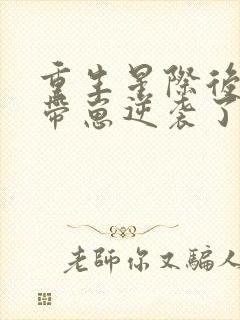 重生星際後
帶崽逆袭了
老師你又騙人